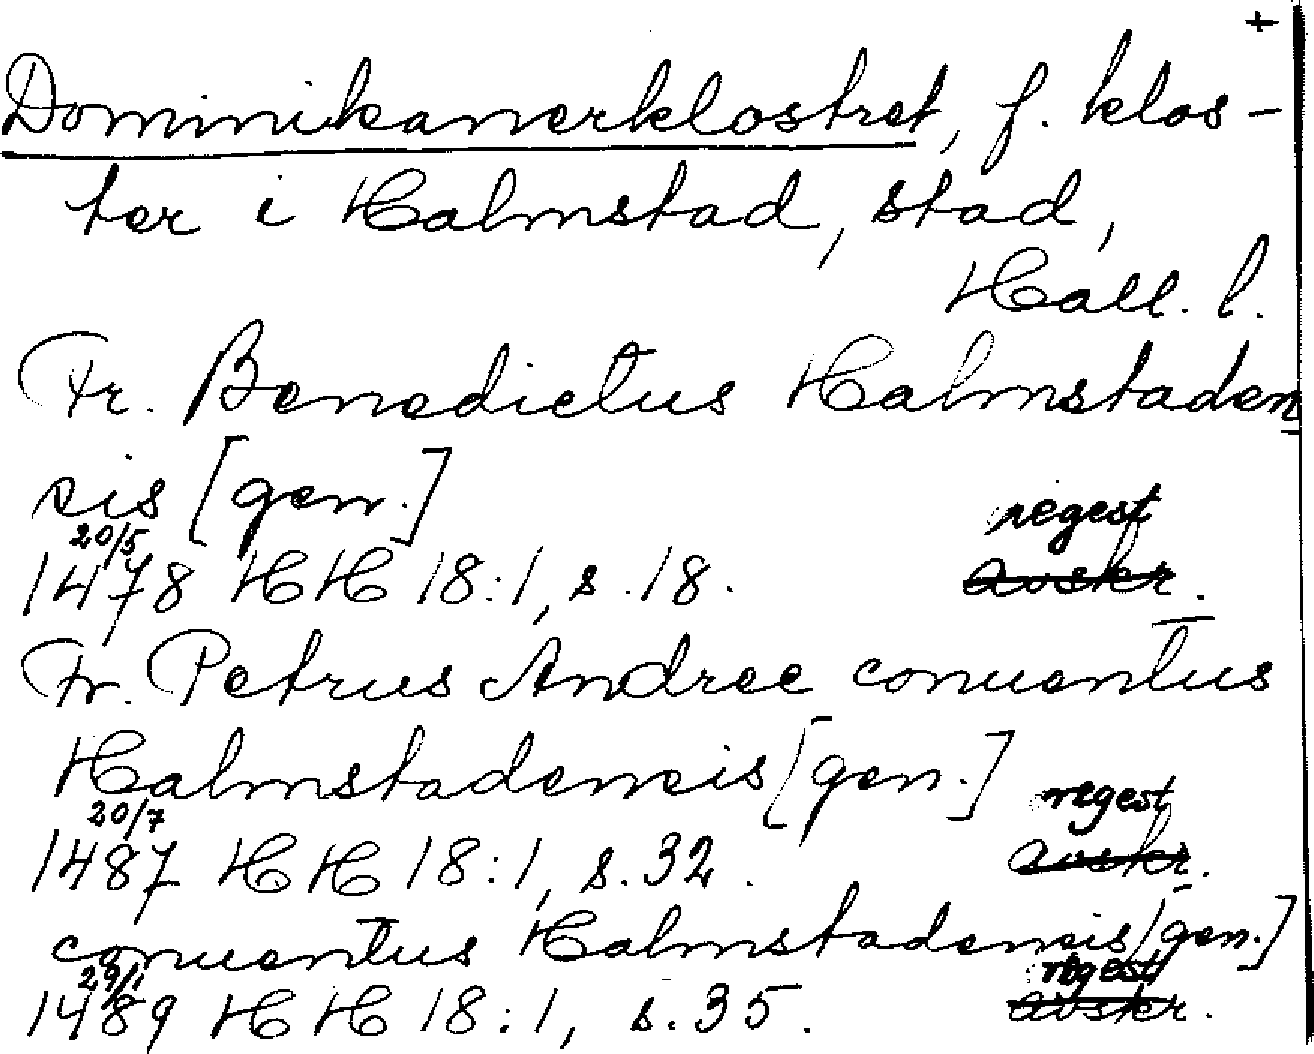 +
Dominikanerklostret, f. klos-
ter i Halmstad, stad,
Hall. l.
Fr. Benedictus Halmstaden
sis [gen.]
20/5 regest
1478 HH 18:1, s. 18. avskr.
Fr. Petrus Andree conuentus
Halmstadensis [gen.]
20/7 regest
1487 HH 18:1, s. 32. avskr.
conuentus Halmstadensis [gen.]
regest
1489 HH 18:1, s. 35. avskr.